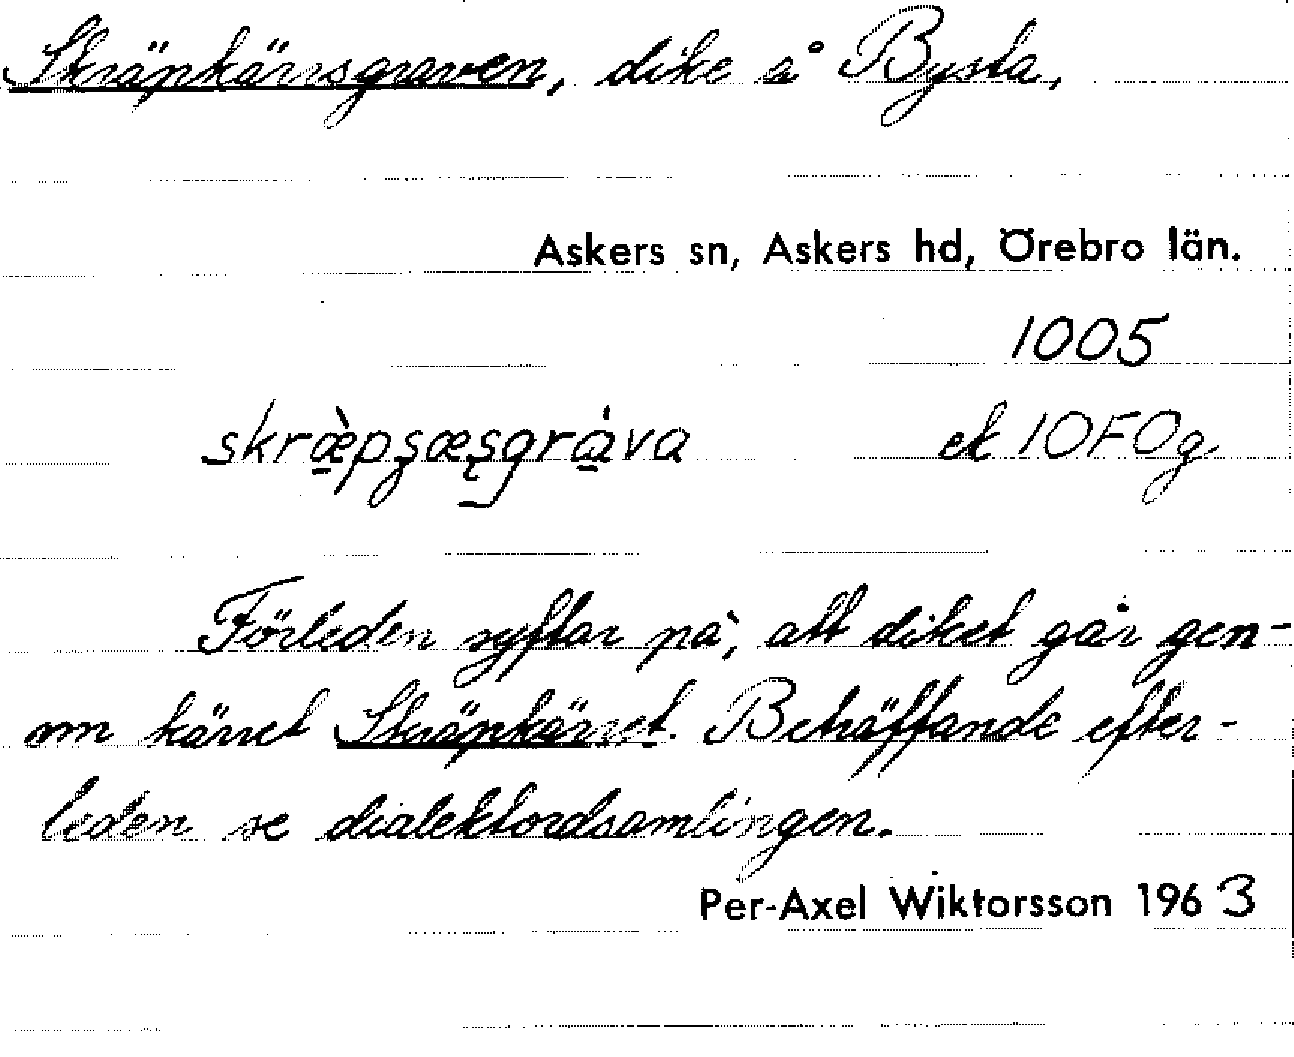 Skräpkärrsgraven, dike å Bysta,
Askers sn, Askers hd, Örebro län.
1005
ek 10F0g
Förleden syftar på, att diket går gen-
om kärret Skräpkärret. Beträffande efter-
leden se dialektordsamlingen.
Per-Axel Wiktorsson 1963